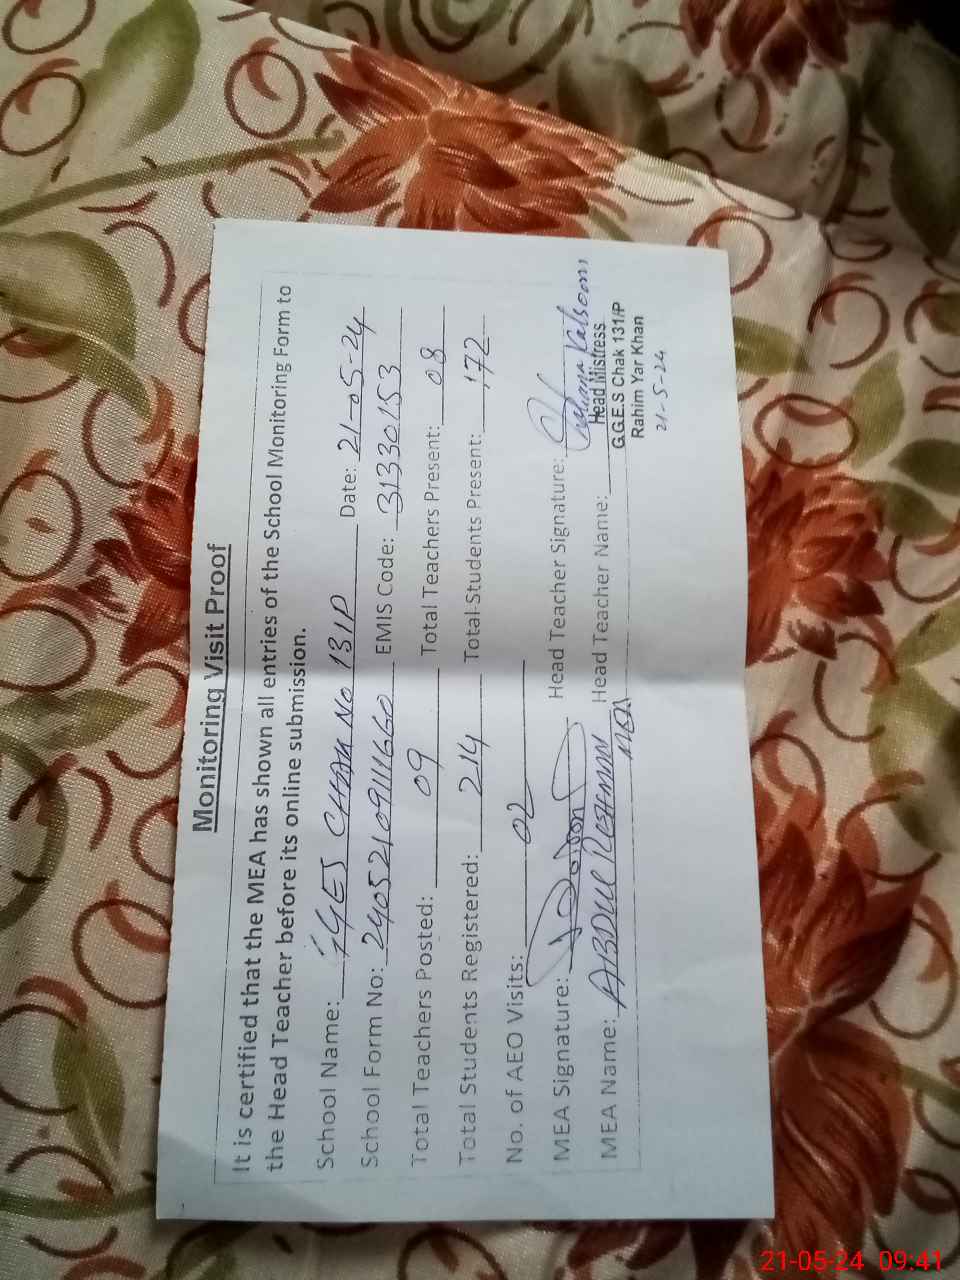 Monitoring Visit Proof
It is certified that the MEA has shown all entries of the School Monitoring Form to
the Head Teacher before its online submission.
School Name: GGES CHAK No 131P Date: 21-05-24
School Form No: 240521091111660 EMIS Code: 31330153
Total Teachers Posted: 09 Total Teachers Present: 08
Total Students Registered: 214 Total Students Present: 172
No. of AEO Visits: 02
MEA Signature: Head Teacher Signature:
MEA Name: ABDUL REHMAN MEA Head Teacher Name: Kalsom
Head Mistress
G.G.E.S Chak 131/P
Rahim Yar Khan
21-5-24
21-05-24 09:41